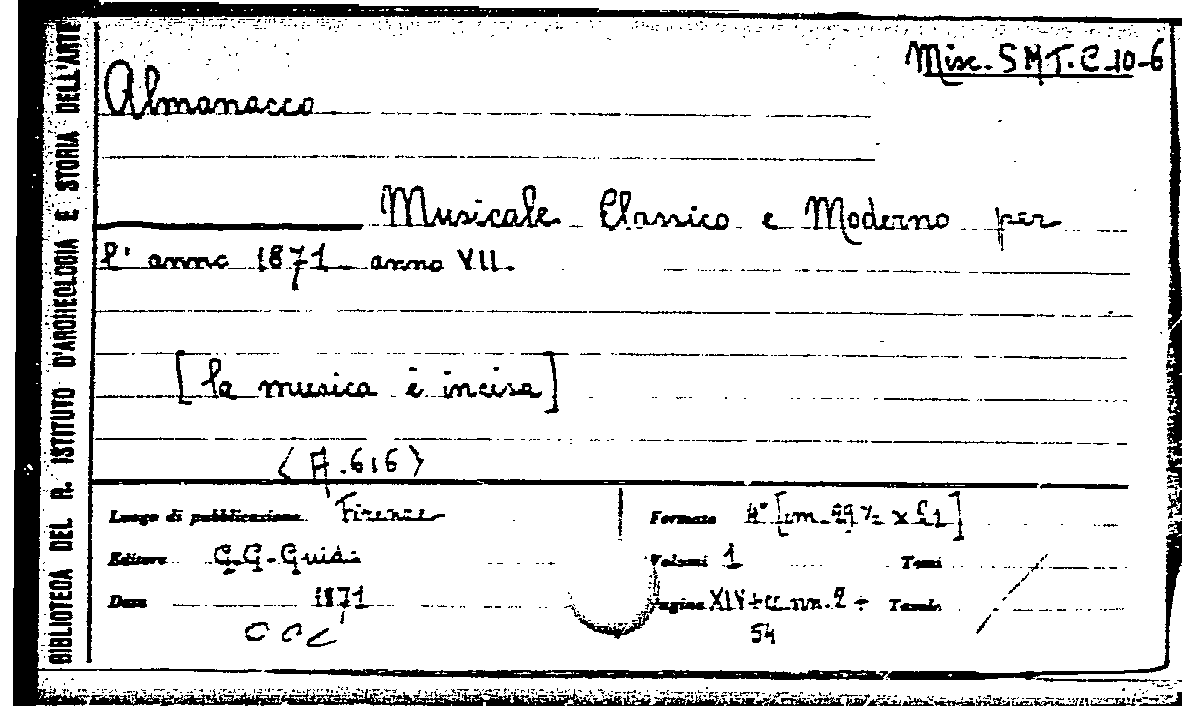 BIBLIOTECA DEL R. ISTITUTO D'ARCHEOLOGIA E STORIA DELL'ARTE
Misc. SMT.C.10-6
Almanacco
Musicale Classico e Moderno per
l'anno 1871 anno VII.
[la musica è incisa]
<A.616>
Luogo di pubblicazione Firenze
Editore G.G. Guidi
Data 1871
Formato 4° [cm.
Volumi 1 Tomi
Pagine XIV + cc. nn. 2 + Tavole
54